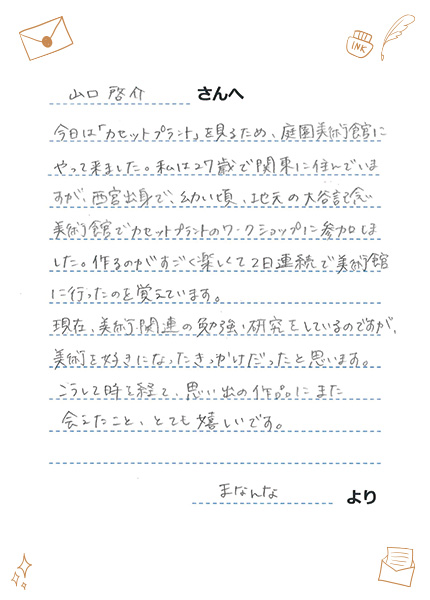 山口 啓介 さんへ
今日は「カセットプラント」を見るため、庭園美術館に
やって来ました。私は27歳で関東に住んでいま
すが、西宮出身で、幼い頃、地元の大谷記念
美術館でカセットプラントのワークショップに参加しま
した。作るのがすごく楽しくて2日連続で美術館
に行ったのを覚えています。
現在、美術関連の勉強・研究をしているのですが、
美術を好きになったきっかけだったと思います。
こうして時を経て、思い出の作品にまた
会えたこと、とても嬉しいです。
まなんな より
INK